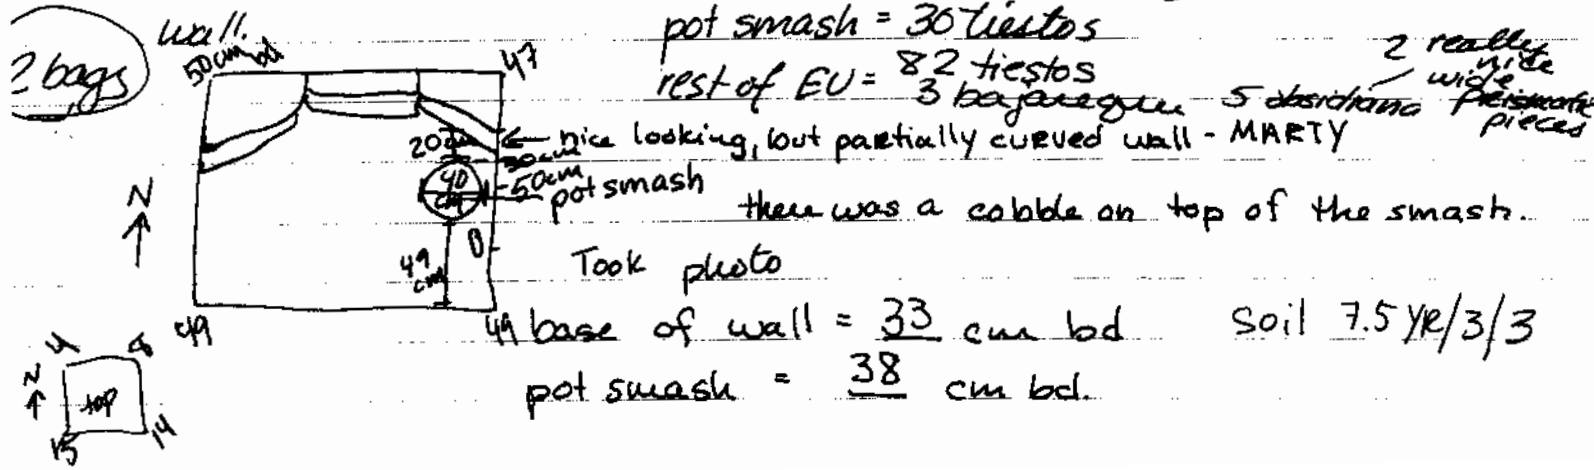 2 bags
wall.
50cm bd
47
pot smash = 30 tiestos
rest of EU = 82 tiestos
3 bajareque 5 obsidiana
2 really
nice
wide
prismatic
pieces
20cm
← nice looking, but partially curved wall - MARTY
30cm
40
cm
50cm
pot smash
there was a cobble on top of the smash.
N
49
cm
Took photo
49
49
base of wall = 33 cm bd
Soil 7.5 YR/3/3
pot smash = 38 cm bd.
4
8
N
top
15
14